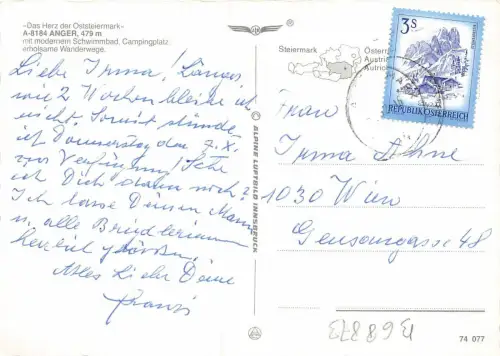 »Das Herz der Oststeiermark«
A-8184 ANGER, 479 m
mit modernem Schwimmbad, Campingplatz
erholsame Wanderwege.
Liebe Irma! Länger
wie 2 Wochen bleibe ich
nicht. Somit stünde
ich Donnerstag den 7. X.
zur Verfügung! Sehe
ich Dich dann noch?
Ich lasse Deinen Mann
u. alle
herzlich grüßen.
Alles Liebe Deine
Franzi
© ALPINE LUFTBILD INNSBRUCK
Steiermark
Österr
Austria
Autric
3S
REPUBLIK ÖSTERREICH
Frau
Irma
1030 Wien
48
74 077